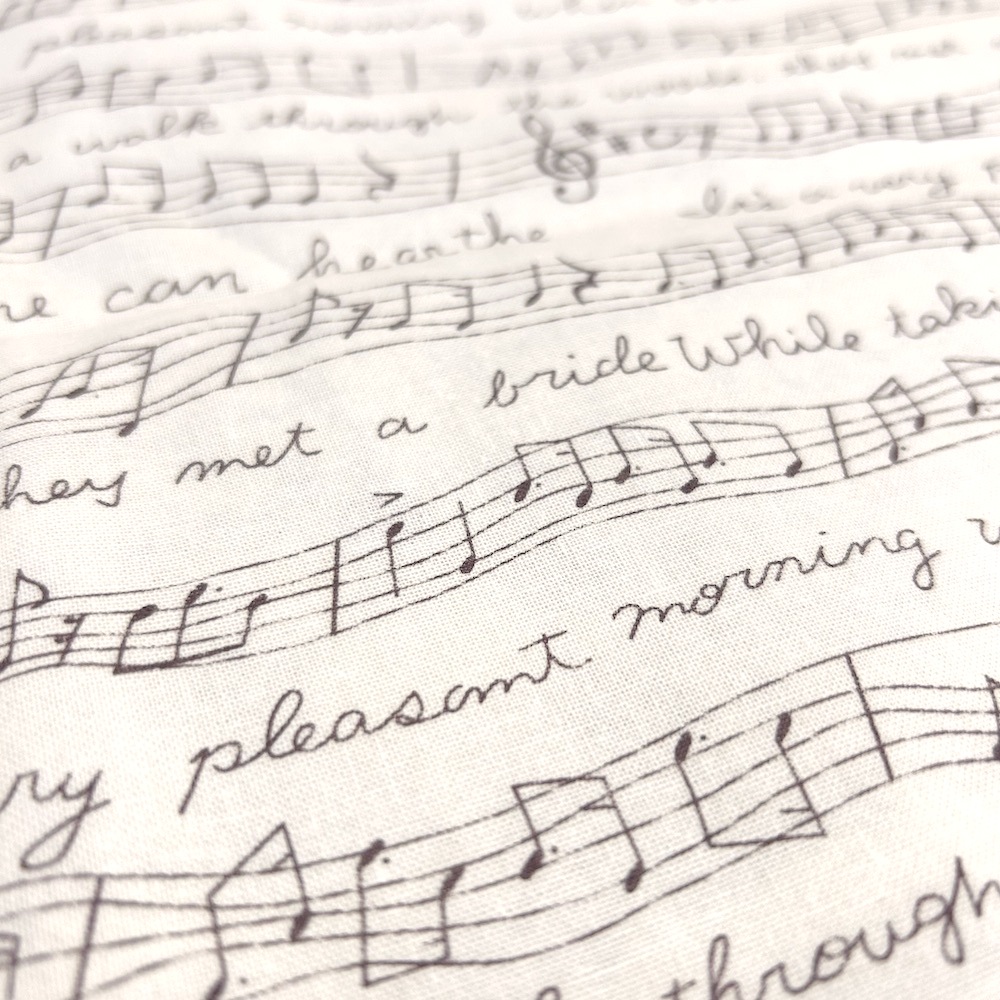 pleasant morning
a walk through the woods, they met a
re can hear the It's a very
hey met a bride While taki
ry pleasant morning
through